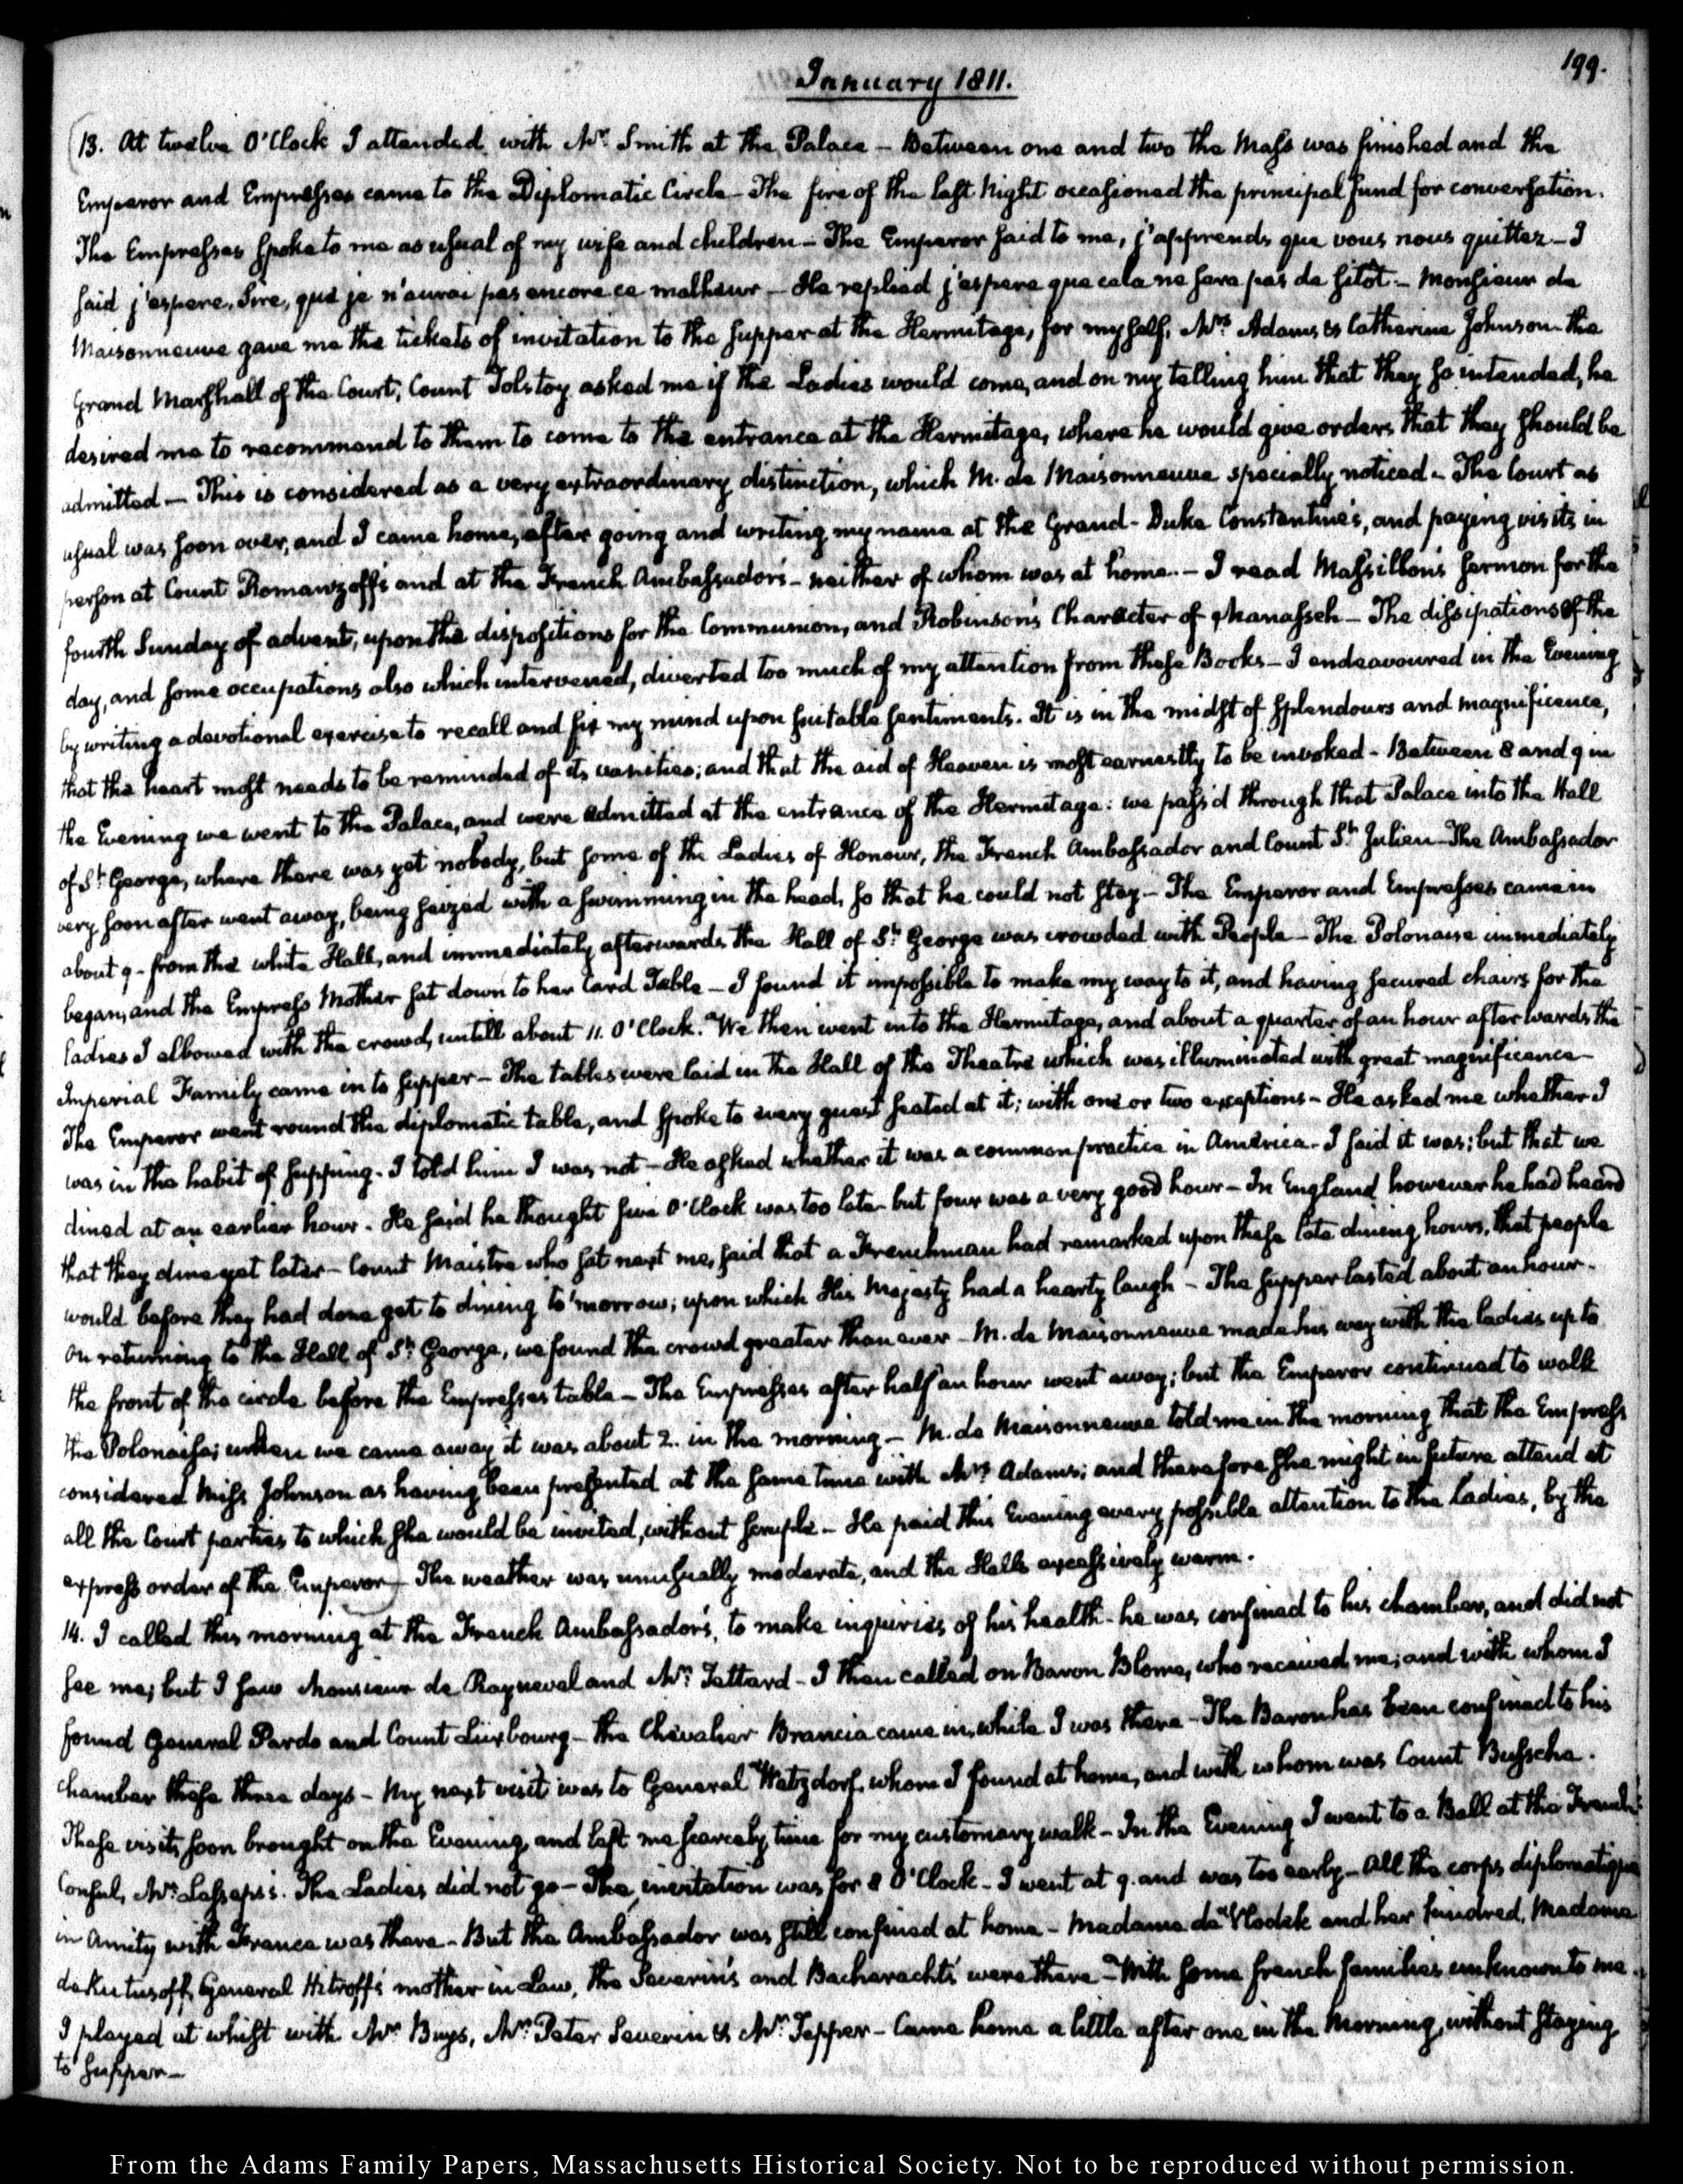 199.
January 1811.
13. At twelve O'Clock I attended with Mr. Smith at the Palace — Between one and two the Mass was finished and the
Emperor and Empresses came to the Diplomatic Circle — The fire of the last Night occasioned the principal fund for conversation.
The Empresses spoke to me as usual of my wife and children — The Emperor said to me, j'apprends que vous nous quittez — I
said j'espere, Sire, que je n'aurai pas encore ce malheur — He replied j'espere que cela ne sera pas de sitôt. — Monsieur de
Maisonneuve gave me the tickets of invitation to the supper at the Hermitage, for myself, Mrs. Adams & Catherine Johnson. the
Grand Marshall of the Court, Count Tolstoy asked me if the Ladies would come, and on my telling him that they so intended, he
desired me to recommend to them to come to the entrance at the Hermitage, where he would give orders that they should be
admitted — This is considered as a very extraordinary distinction, which M. de Maisonneuve specially noticed — The Court as
usual was soon over, and I came home, after going and writing my name at the Grand-Duke Constantine's, and paying visits in
person at Count Romanzoff's and at the French Ambassador's — neither of whom was at home. — I read Massillon's sermon for the
fourth Sunday of advent, upon the dispositions for the Communion, and Robinson's Character of Manasseh — The dissipations of the
day, and some occupations also which intervened, diverted too much of my attention from these Books — I endeavoured in the Evening
by writing a devotional exercise to recall and fix my mind upon suitable sentiments. It is in the midst of splendours and magnificence,
that the heart most needs to be reminded of its vanities; and that the aid of Heaven is most earnestly to be invoked — Between 8 and 9 in
the Evening we went to the Palace, and were admitted at the entrance of the Hermitage: we pass'd through that Palace into the Hall
of St. George, where there was yet nobody, but some of the Ladies of Honour, the French Ambassador and Count St. Julien — The Ambassador
very soon after went away, being seized with a swimming in the head, so that he could not stay — The Emperor and Empresses came in
about 9 — from the white Hall, and immediately afterwards the Hall of St. George was crowded with People — The Polonaise immediately
began, and the Empress Mother sat down to her Card Table — I found it impossible to make my way to it, and having secured chairs for the
ladies I elbowed with the crowd, untill about 11. O'Clock. We then went into the Hermitage, and about a quarter of an hour afterwards the
Imperial Family came in to supper — The tables were laid in the Hall of the Theatre which was illuminated with great magnificence —
The Emperor went round the diplomatic table, and spoke to every guest seated at it; with one or two exceptions — He asked me whether I
was in the habit of supping — I told him I was not — He asked whether it was a common practice in America — I said it was; but that we
dined at an earlier hour — He said he thought five O'Clock was too late but four was a very good hour — In England however he had heard
that they dine yet later — Count Maistre who sat next me, said that a Frenchman had remarked upon these late dining hours, that people
would before they had done get to dining to'morrow; upon which His Majesty had a hearty laugh — The supper lasted about an hour.
On returning to the Hall of St. George, we found the crowd greater than ever — M. de Maisonneuve made his way with the ladies up to
the front of the circle before the Empresses table — The Empresses after half an hour went away; but the Emperor continued to walk
the Polonaises; when we came away it was about 2. in the morning — M. de Maisonneuve told me in the morning that the Empress
considered Miss Johnson as having been presented at the same time with Mrs. Adams; and therefore she might in future attend at
all the Court parties to which she would be invited, without scruple — He paid this Evening every possible attention to the Ladies, by the
express order of the Emperor — The weather was unusually moderate, and the Halls excessively warm.
14. I called this morning at the French Ambassador's, to make inquiries of his health — he was confined to his chamber, and did not
see me; but I saw Monsieur de Rayneval and Mr. Tattard — I then called on Baron Blome, who received me; and with whom I
found General Pardo and Count Luxbourg — the Chevalier Brancia came in, while I was there — The Baron has been confined to his
chamber these three days — My next visit was to General Watzdorf, whom I found at home, and with whom was Count Bussche.
These visits, soon brought on the Evening, and left me scarcely time for my customary walk — In the Evening I went to a Ball at the French
Consul, Mr. Lesseps's. The Ladies did not go — The invitation was for 8 O'Clock — I went at 9. and was too early — All the corps diplomatique
in Amity with France was there — But the Ambassador was still confined at home — Madame de Vlodek and her kindred, Madame
de Kutusoff, General Hitroff's mother in Law, the Severin's and Bacheracht's were there — With some french families unknown to me.
I played at whist with Mr. Buys, Mr. Peter Severin & Mr. Tepper — Came home a little after one in the Morning, without staying
to supper —
From the Adams Family Papers, Massachusetts Historical Society. Not to be reproduced without permission.